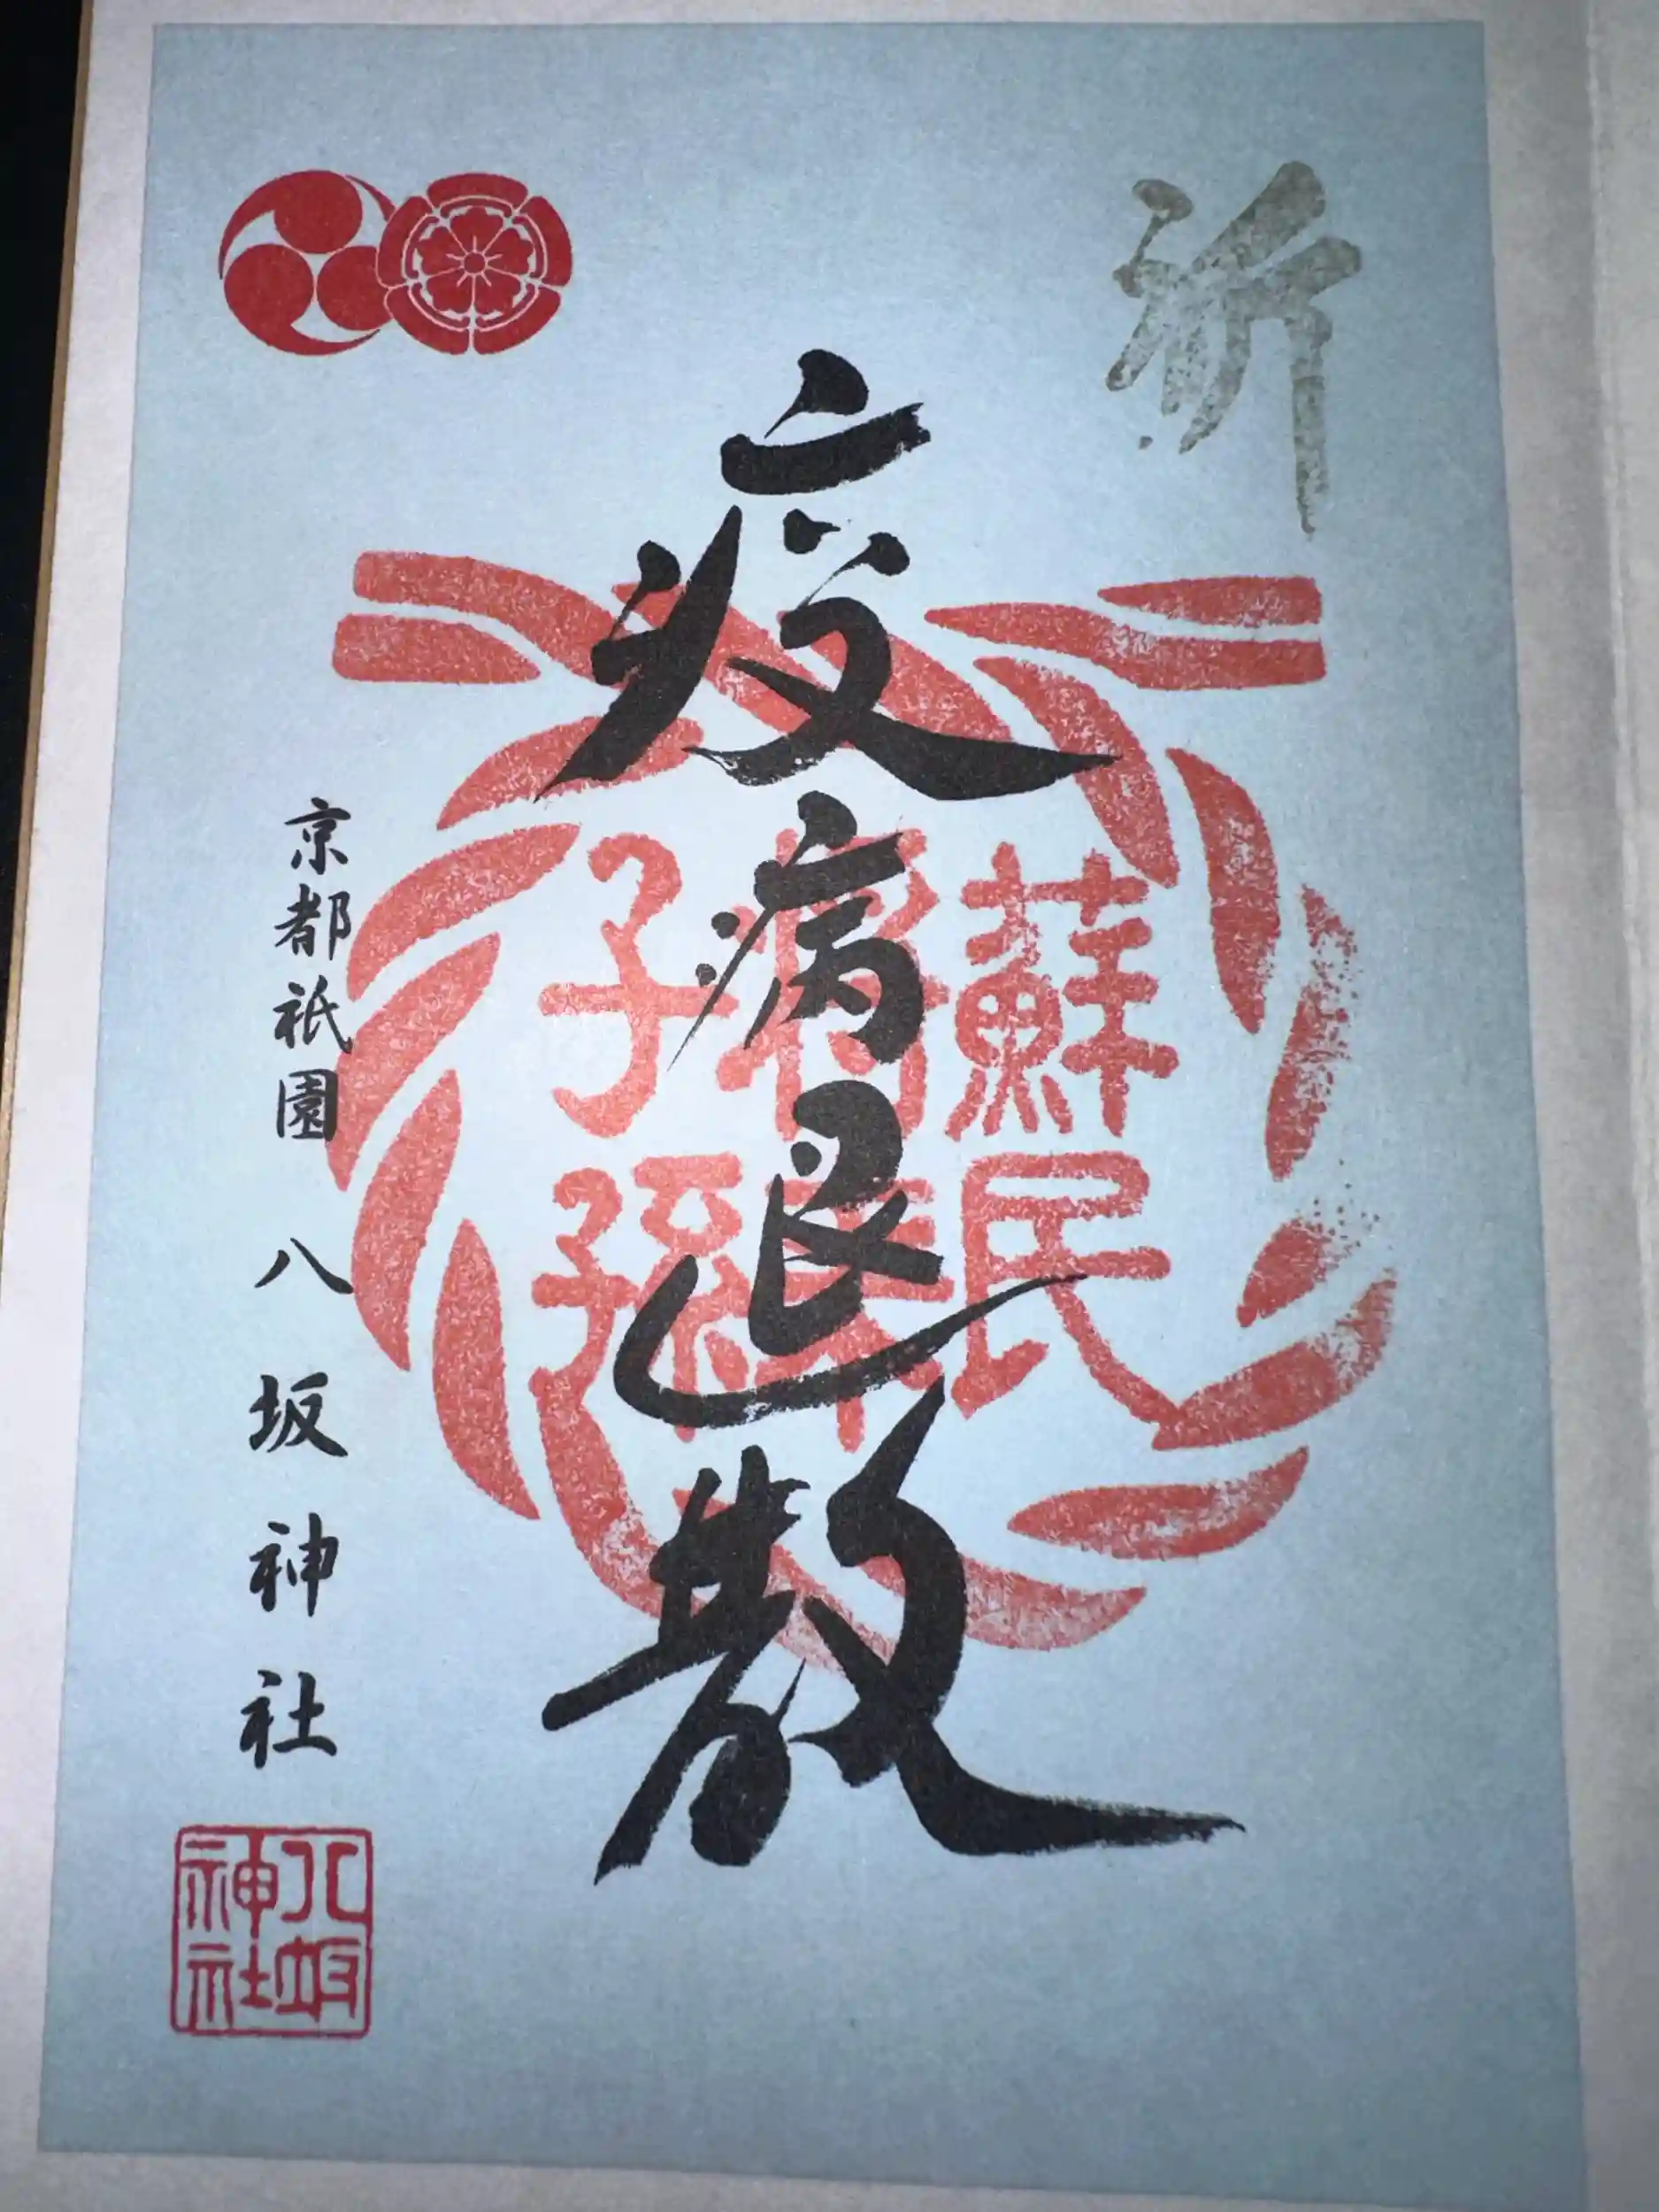 祈
疫病退散
蘇民
将来
子孫
京都祇園 八坂神社
八坂
神社